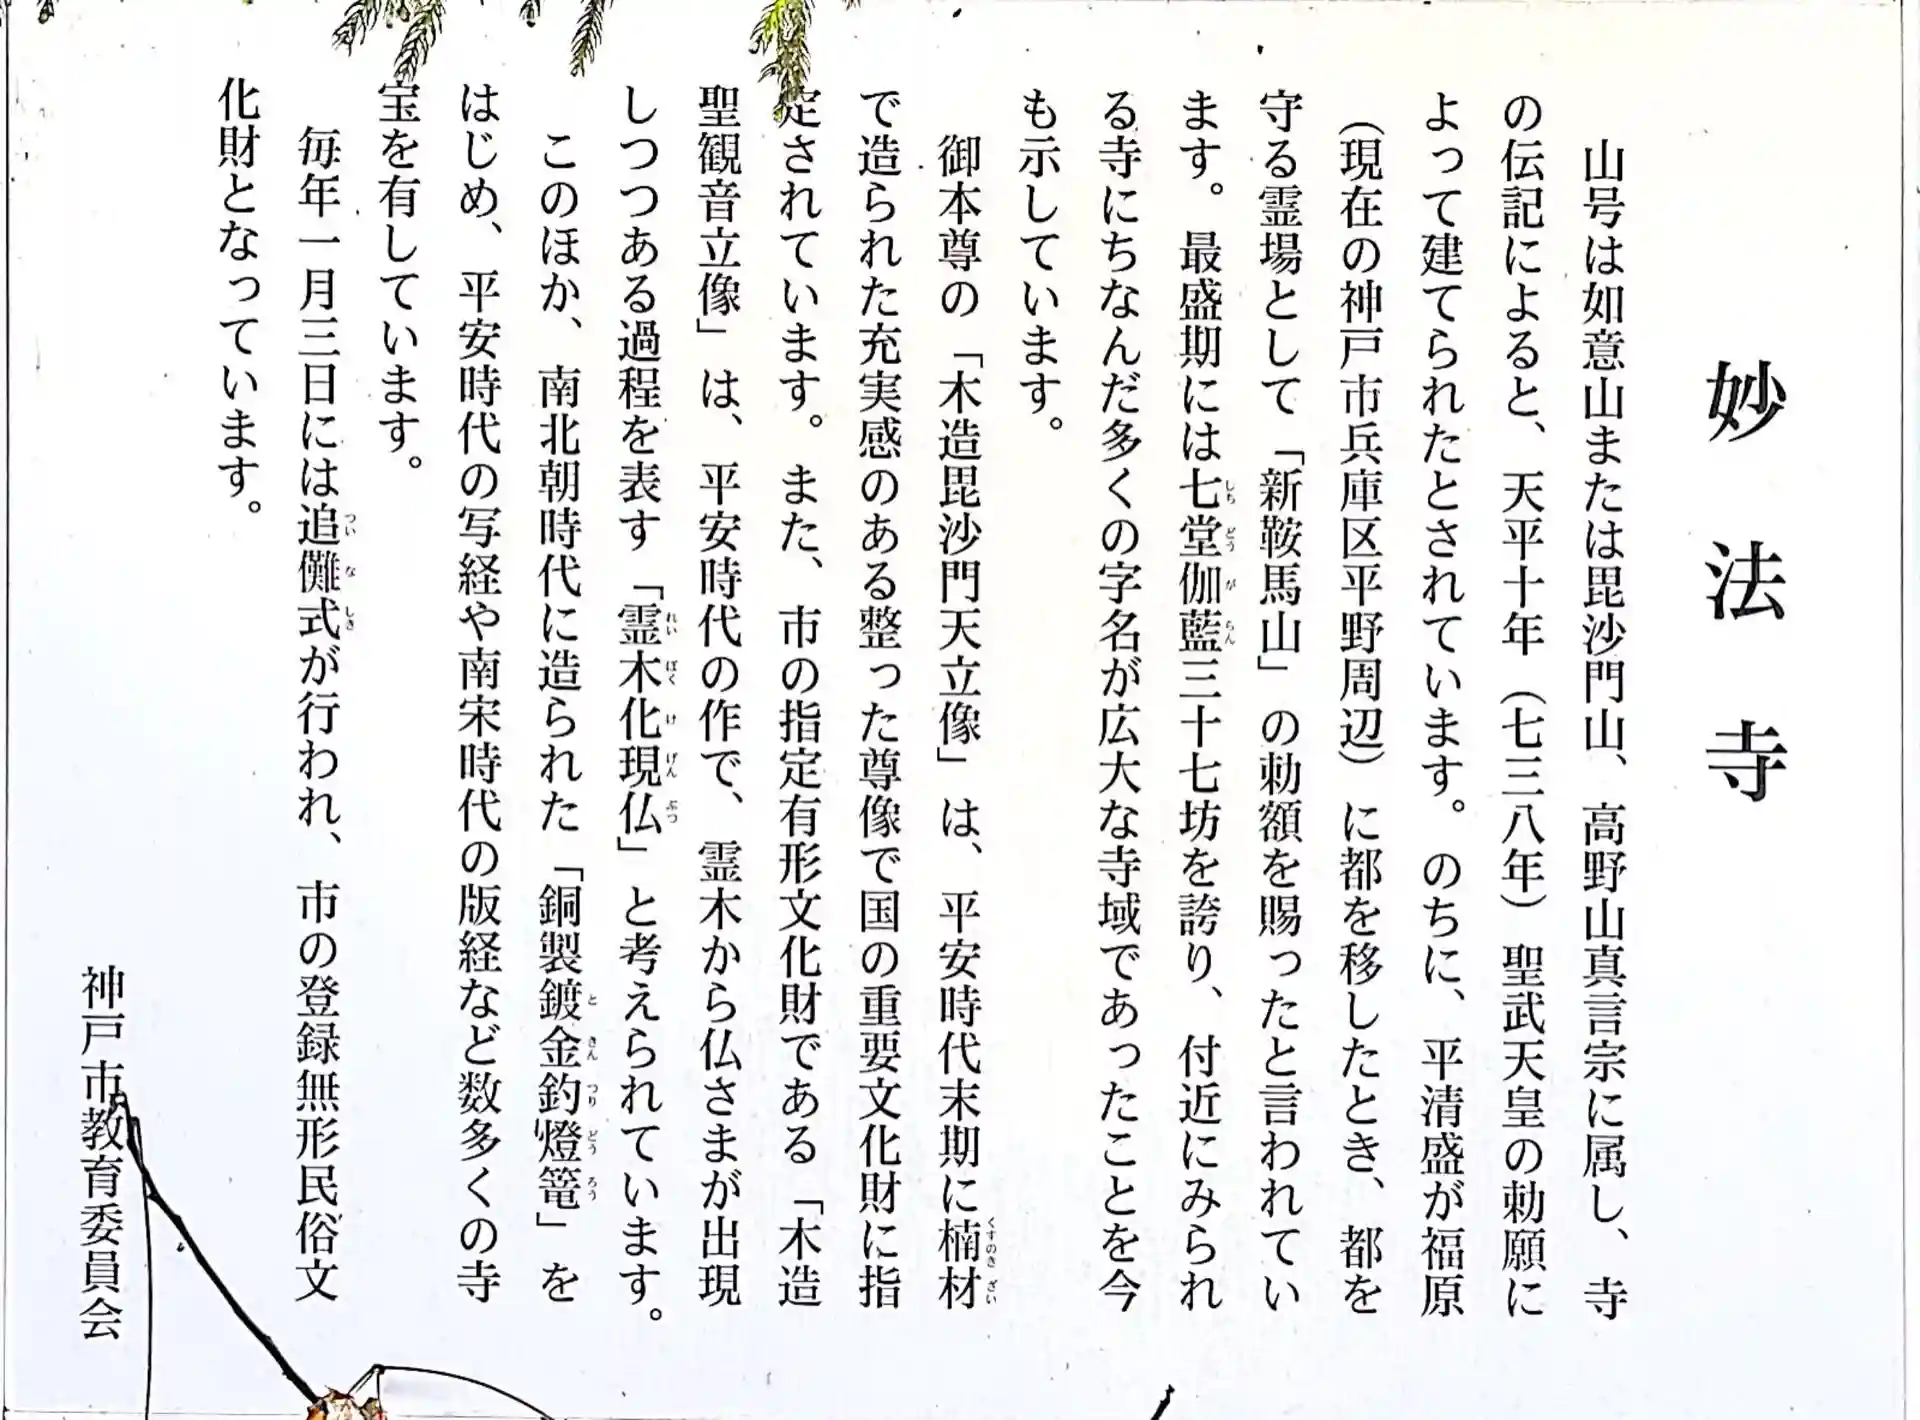 妙法寺
山号は如意山または毘沙門山、高野山真言宗に属し、寺
の伝記によると、天平十年（七三八年）聖武天皇の勅願に
よって建てられたとされています。のちに、平清盛が福原
（現在の神戸市兵庫区平野周辺）に都を移したとき、都を
守る霊場として「新鞍馬山」の勅額を賜ったと言われてい
ます。最盛期には七堂伽藍三十七坊を誇り、付近にみられ
る寺にちなんだ多くの字名が広大な寺域であったことを今
も示しています。
御本尊の「木造毘沙門天立像」は、平安時代末期に楠材
で造られた充実感のある整った尊像で国の重要文化財に指
定されています。また、市の指定有形文化財である「木造
聖観音立像」は、平安時代の作で、霊木から仏さまが出現
しつつある過程を表す「霊木化現仏」と考えられています。
このほか、南北朝時代に造られた「銅製鍍金釣燈篭」を
はじめ、平安時代の写経や南宋時代の版経など数多くの寺
宝を有しています。
毎年一月三日には追儺式が行われ、市の登録無形民俗文
化財となっています。
神戸市教育委員会